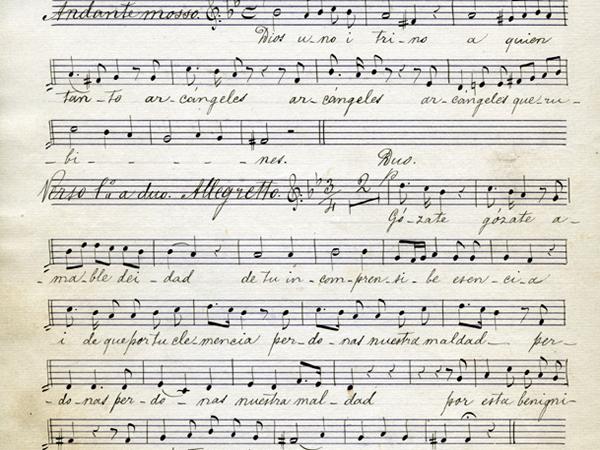 Andante mosso.
Dios u-no i tri-no a quien
tan-to ar-cángeles ar-cángeles ar-cángeles que-ru-
-bi- - - - nes. Duo.
Verso 1º a duo. Allegretto. 3/4 2
Gó-zate gózate a-
-ma-ble dei-dad de tu in-com-pren-si-be esen-ci-a
i de que por tu cle mencia per-do-nas nuestra maldad per-
-do-nas per-do-nas nuestra mal-dad por esta benigni-